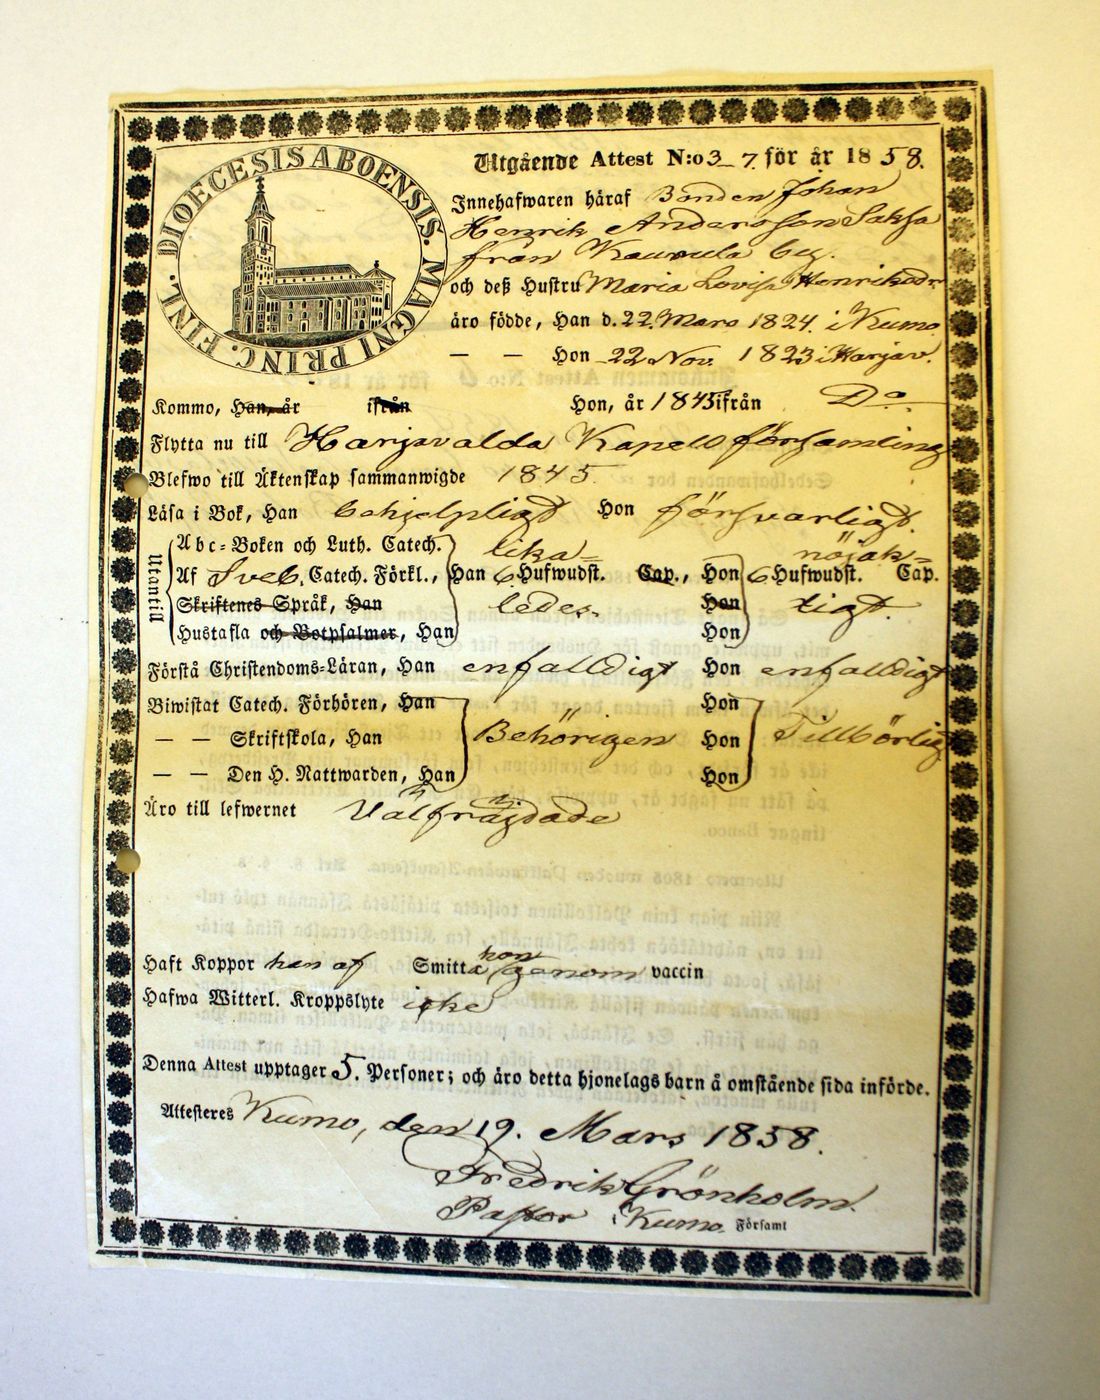 DIOECESIS ABOENSIS. MAGNI PRINC. FINL.
Utgående Attest N:o 3-7. för år 1858.
Innehafwaren häraf Bonden Johan
Henrik Andersson Saksa
från Kauvula by.
och deß Hustru Maria Lovisa Henriksdr
äro födde, Han d. 22. Mars 1824. i Kumo.
— — Hon 22 Nov. 1823 i Harjav.
Kommo, Han, år ifrån Hon, år 1845 ifrån Do
Flytta nu till Harjavalda Kapell församling
Blefwo till Äktenskap sammanwigde 1845.
Läsa i Bok, Han behjelpligt Hon försvarligt.
Utantill
Abc-Boken och Luth. Catech. lika= nöjak=
Af Sveb. Catech. Förkl., Han 6 Hufwudst. Cap., Hon 6 Hufwudst. Cap.
Skriftenes Språk, Han ledes. Hon ligt.
Hustafla och Botpsalmer, Han Hon
Förstå Christendoms-Läran, Han enfalldigt Hon enfalldigt
Biwistat Catech. Förhören, Han Hon
— — Skriftskola, Han Behörigen Hon Tillbörlig
— — Den H. Nattwarden, Han Hon
Äro till lefwernet Välfrägdade
Haft Koppor han af Smitta hon genom vaccin
Hafwa Witterl. Kroppslyte icke
Denna Attest upptager 5. Personer; och äro detta hjonelags barn å omstående sida införde.
Attesteres Kumo, den 19. Mars 1858.
Fredrik Grönholm.
Pastor i Kumo. Församl